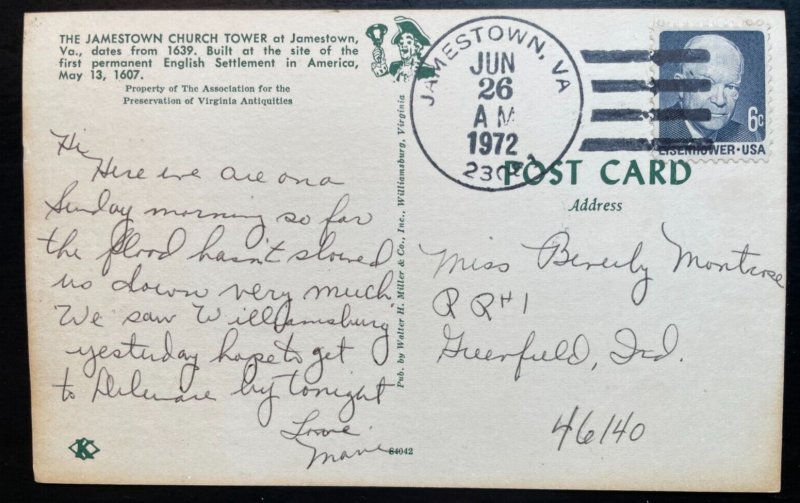 THE JAMESTOWN CHURCH TOWER at Jamestown,
Va., dates from 1639. Built at the site of the
first permanent English Settlement in America,
May 13, 1607.
Property of The Association for the
Preservation of Virginia Antiquities
Hi
Here we are on a
Sunday morning so far
the flood hasn't slowed
us down very much.
We saw Williamsburg
yesterday hope to get
to Delaware by tonight
Love
Marie
K
84042
Pub. by Walter H. Miller & Co., Inc., Williamsburg, Virginia
JAMESTOWN, VA
JUN
26
AM
1972
6c
EISENHOWER·USA
POST CARD
Address
Miss Beverly Montrose
RR#1
Greenfield, Ind.
46140